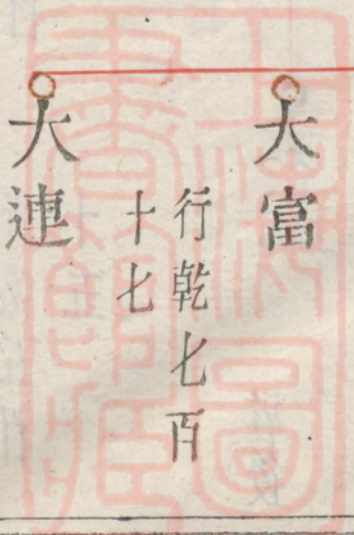 大富
行乾七百
十七
大連